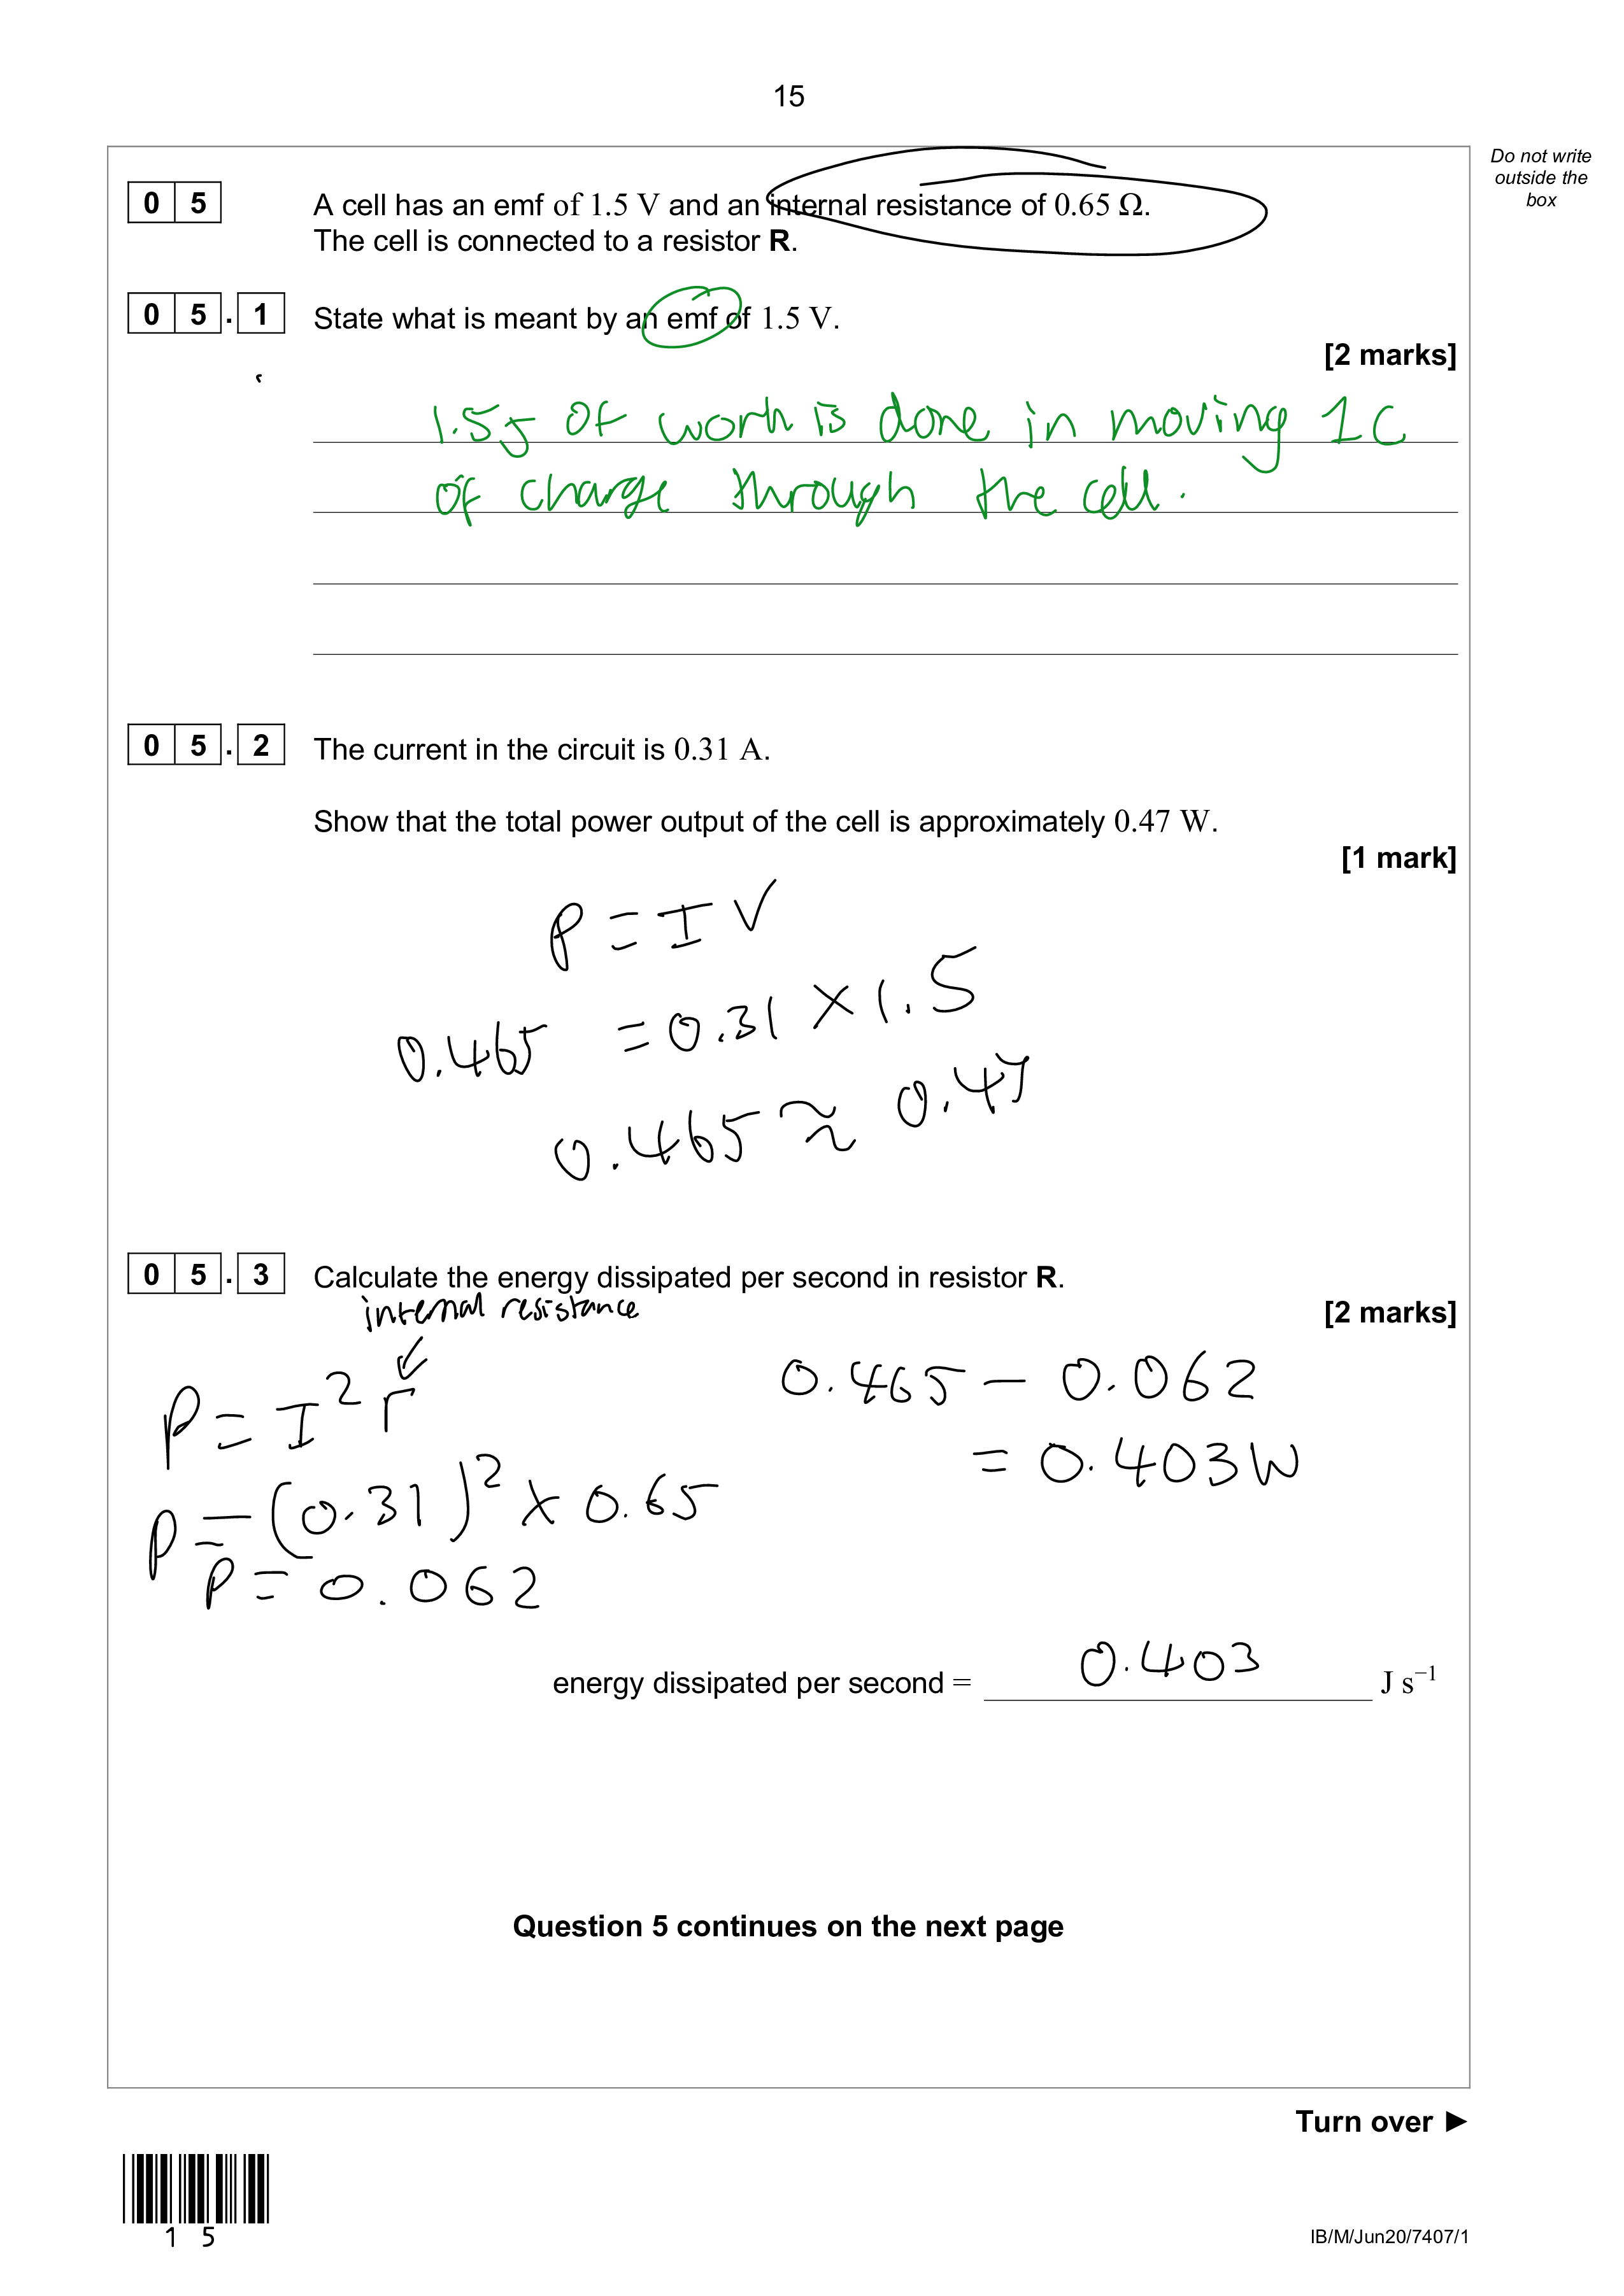 15
Do not write
outside the
box
0 5 A cell has an emf of 1.5 V and an internal resistance of 0.65 Ω.
The cell is connected to a resistor R.
0 5 . 1 State what is meant by an emf of 1.5 V.
[2 marks]
1.5J of work is done in moving 1C
of charge through the cell.
0 5 . 2 The current in the circuit is 0.31 A.
Show that the total power output of the cell is approximately 0.47 W.
[1 mark]
P = I V
0.465 = 0.31 × 1.5
0.465 ≈ 0.47
0 5 . 3 Calculate the energy dissipated per second in resistor R.
[2 marks]
internal resistance
P = I² r
P = (0.31)² × 0.65
P = 0.062
0.465 – 0.062
= 0.403W
energy dissipated per second = 0.403 J s⁻¹
Question 5 continues on the next page
Turn over ►
1 5
IB/M/Jun20/7407/1